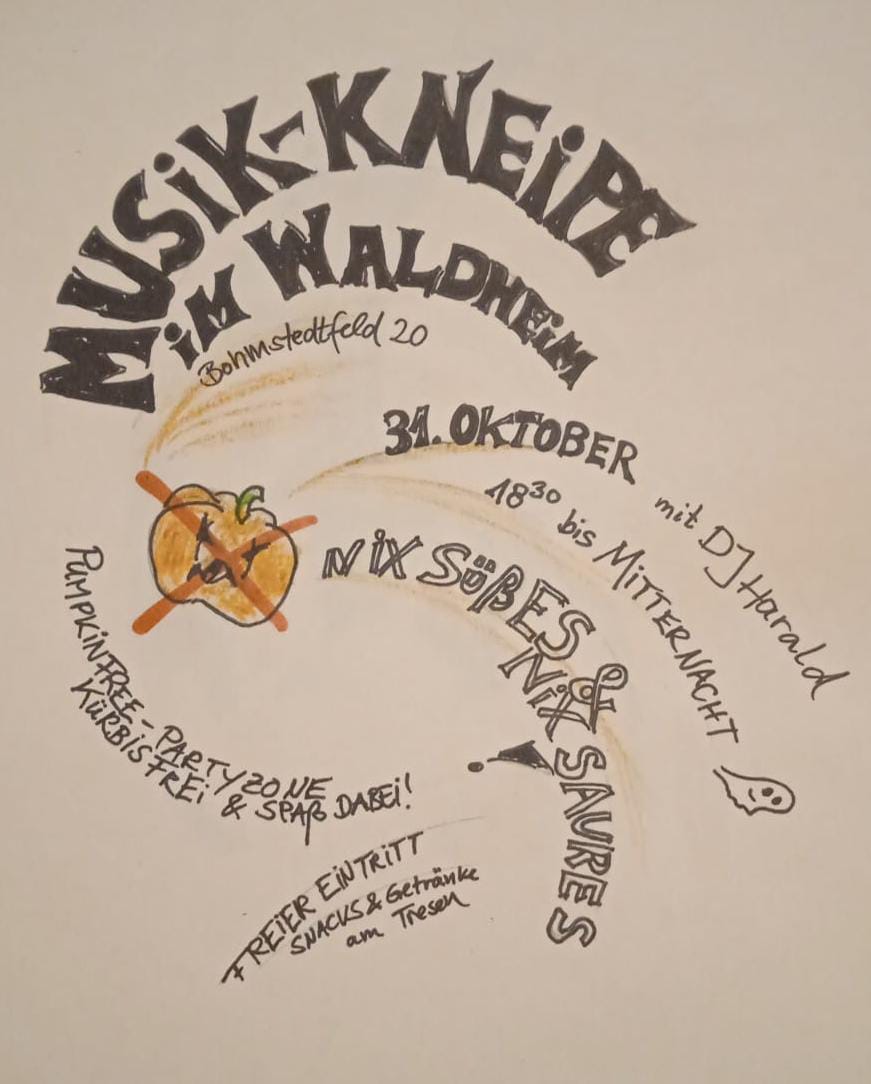 MUSiK-KNEiPE
iM WALDHEiM
Bohmstedtfeld 20
31. OKTOBER
18³⁰ bis MiTTERNACHT
mit DJ Harald
NiX SÜßES &
NiX SAURES!
PUMPKiNFREE-PARTYZONE
KÜRBiSFREi & SPAß DABEi!
FREiER EiNTRiTT
SNACKS & Getränke
am Tresen